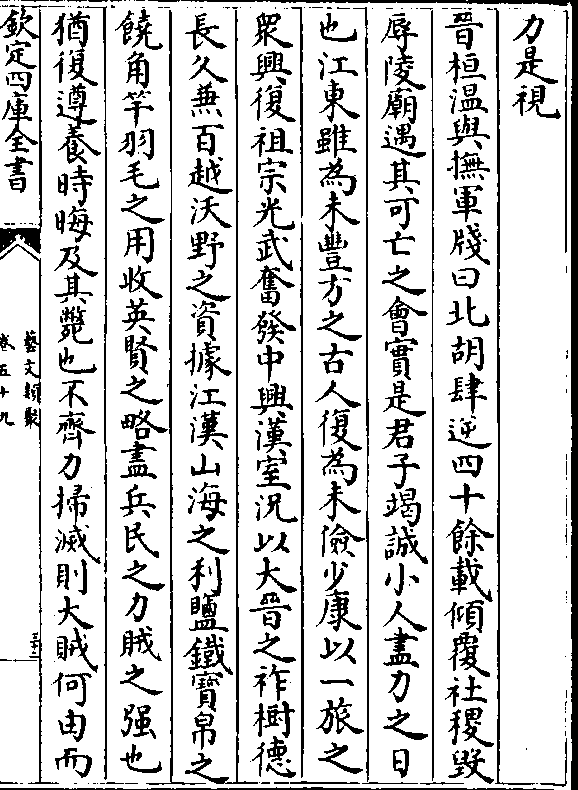 力是視
晉桓温與撫軍牋曰北胡肆逆四十餘載傾覆社稷毀
辱陵廟遇其可亡之會實是君子竭誠小人盡力之日
也江東雖為未豐方之古人復為未儉少康以一旅之
衆興復祖宗光武奮發中興漢室況以大晉之祚樹德
長久兼百越沃野之資據江漢山海之利鹽鐵寶帛之
饒角竿羽毛之用收英賢之略盡兵民之力賊之强也
猶復遵養時晦及其斃也不齊力掃滅則大賊何由而
欽定四庫全書
藝文類聚
卷五十九
三十二